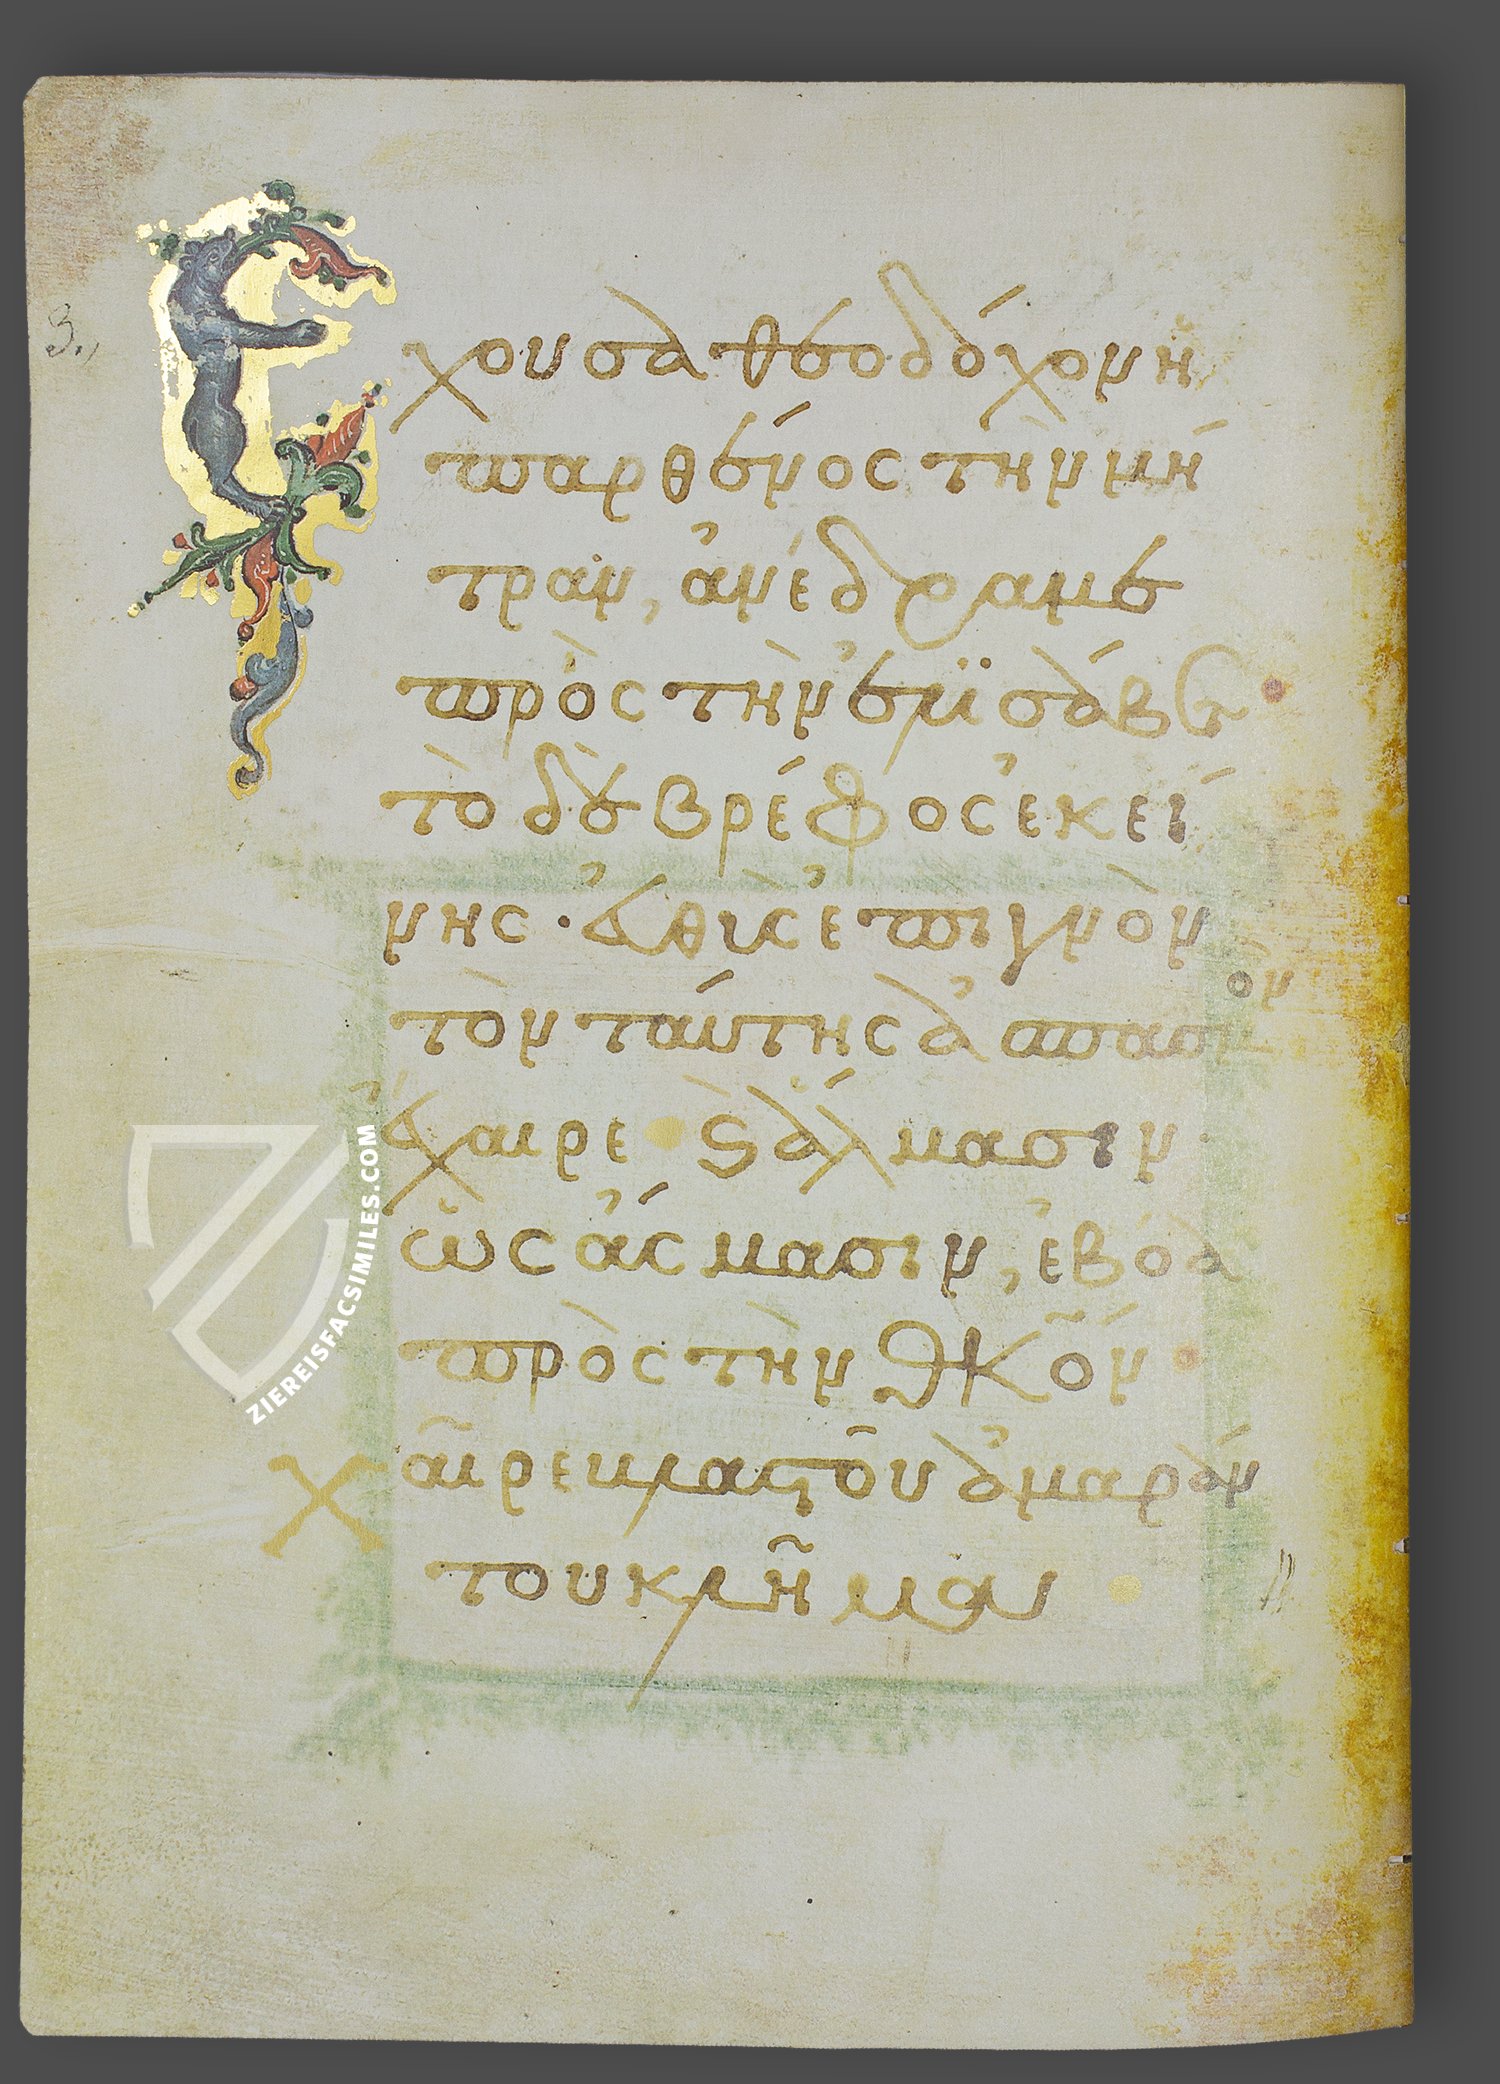 3.,
Ἔχουσα θεοδόχον ἡ
παρθένος τὴν μή
τραν, ἀνέδραμε
πρὸς τὴν ἐλϊσάβετ
τὸ δὲ βρέφος ἐκεί
νης · εὐθὺς ἐπιγνὸν
τὸν ταύτης ἀσπασμ
ὸν
ἔχαιρε · ϛ ἅλμασιν
ὡς ἄσμασιν, ἐβόα
πρὸς τὴν Θ̅Κ̅ον
Χαῖρε βλαστοῦ ἀμαράν
του κλῆμα ·
ZIEREISFACSIMILES.COM